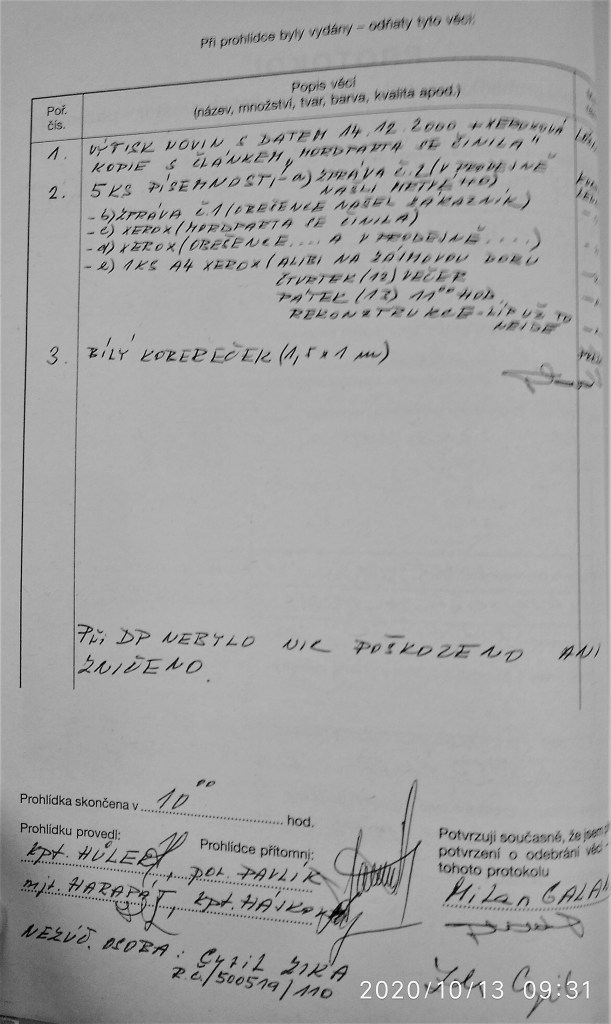 Při prohlídce byly vydány – odňaty tyto věci:
Poř. čís.
Popis věcí
(název, množství, tvar, barva, kvalita apod.)
1. VÝTISK NOVIN S DATEM 14.12.2000 + XEROXOVÁ
KOPIE S ČLÁNKEM „MORDPARTA SE ČINILA"
2. 5KS PÍSEMNOSTÍ - a) ZPRÁVA Č.2 (V PRODEJNĚ
NAŠLI MRTVÉHO)
- b) ZPRÁVA Č.1 (OBĚŠENCE NAŠEL ZÁKAZNÍK)
- c) XEROX (MORDPARTA SE ČINILA)
- d) XEROX (OBĚŠENCE .... A V PRODEJNĚ ....)
- e) 1KS A4 XEROX (ALIBI NA ZÁJMOVOU DOBU
ČTVRTEK (12) VEČER
PÁTEK (13) 11⁰⁰ HOD.
REKONSTRUKCE - LÍP UŽ TO
NEJDE
3. BÍLÝ KOBEREČEK (1,5 x 1 m)
Při DP NEBYLO NIC POŠKOZENO ANI
ZNIČENO.
Prohlídka skončena v 10⁰⁰ hod.
Prohlídku provedl:
kpt. HŮLE
mjr. HARAPÁT
Prohlídce přítomni:
por. PAVLÍK
kpt. HÁJKA
Potvrzuji současně, že jsem
potvrzení o odebrání věcí
tohoto protokolu
Milan GALA
NEZÚČ. OSOBA: Cyril ZIKA
R.Č. 500519/110
2020/10/13 09:31